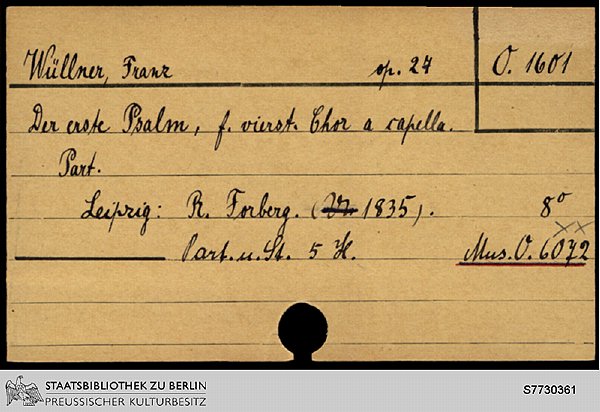 Wüllner, Franz op. 27 O. 1601
Der erste Psalm, f. vierst. Chor a capella.
Part.
Leipzig: R. Forberg. (Vn 1835). 8°
Part. u. St. 5 H. Mus. O. 6072
xx
STAATSBIBLIOTHEK ZU BERLIN
PREUSSISCHER KULTURBESITZ
S7730361